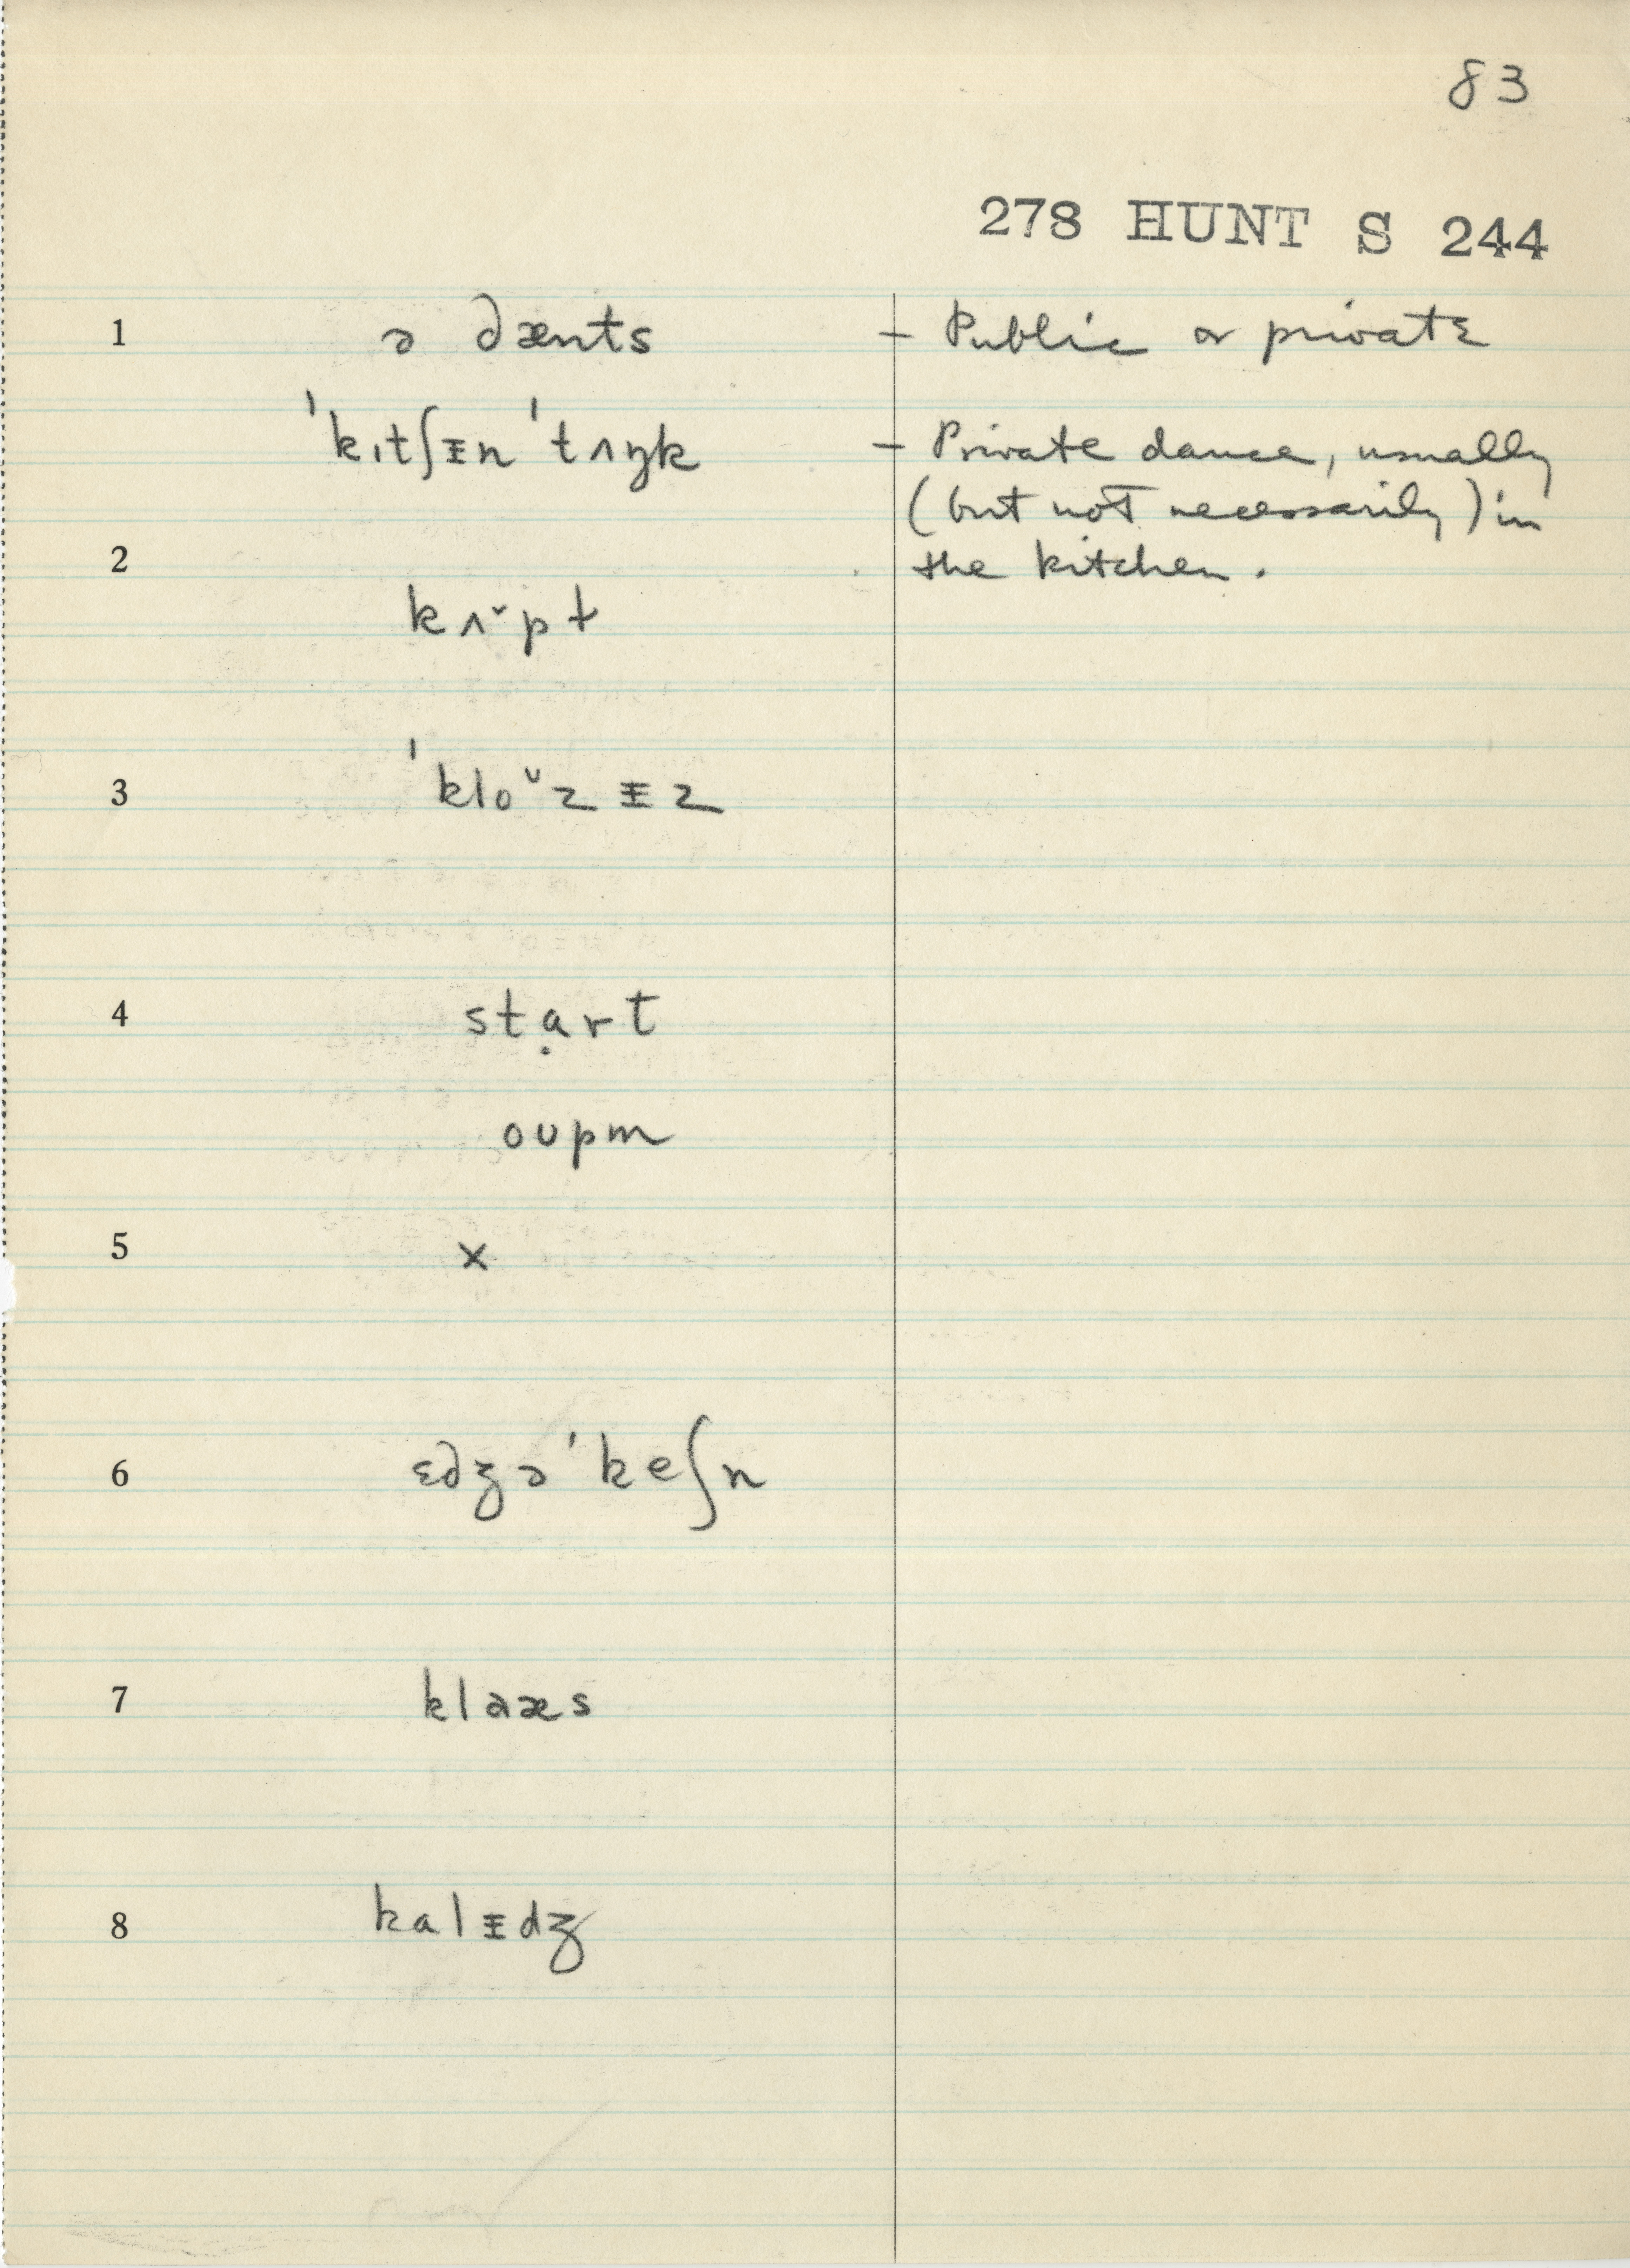 83
278 HUNT S 244
1 ə dænts – Public or private
ˈkɪtʃᵻn ˈtʌŋk – Private dance, usually
(but not necessarily) in
2 the kitchen.
kʌ˅pt
3 ˈkloᴜzᵻz
4 stạrt
oʊpm
5 x
6 ɛdʒəˈkeʃn
7 klaæs
8 kalᵻdʒ